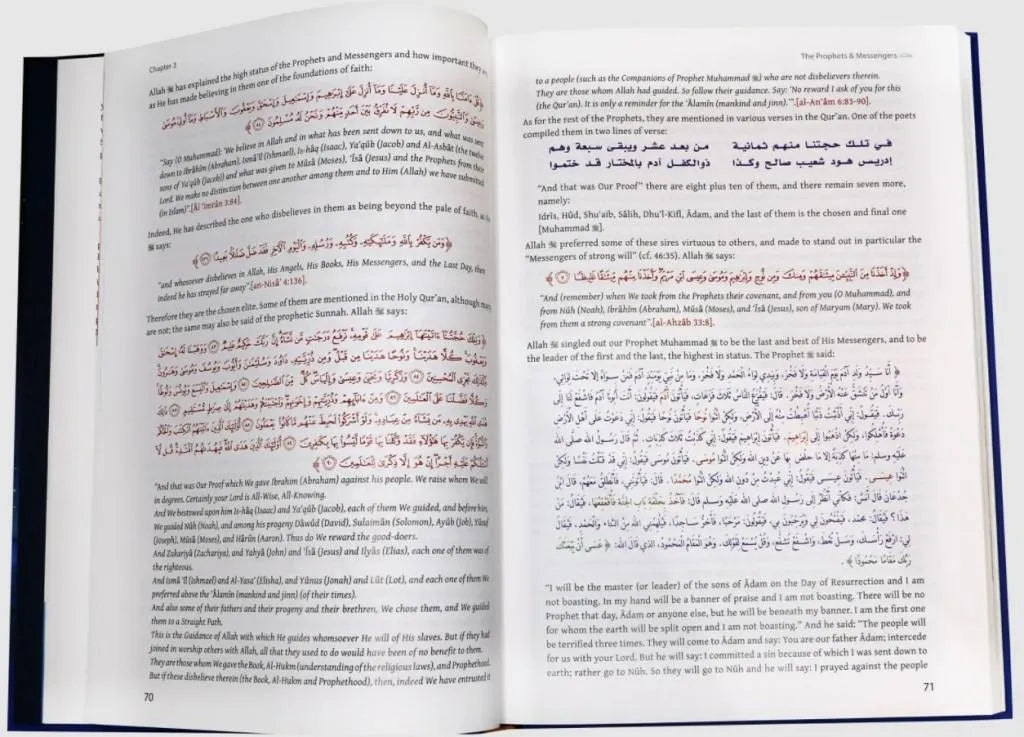 Chapter 3
Allah ﷻ has explained the high status of the Prophets and Messengers and how important they are,
as He has made believing in them one of the foundations of faith:
﴿قُلْ ءَامَنَّا بِٱللَّهِ وَمَآ أُنزِلَ عَلَيْنَا وَمَآ أُنزِلَ عَلَىٰٓ إِبْرَٰهِيمَ وَإِسْمَـٰعِيلَ وَإِسْحَـٰقَ وَيَعْقُوبَ وَٱلْأَسْبَاطِ وَمَآ أُوتِىَ مُوسَىٰ
وَعِيسَىٰ وَٱلنَّبِيُّونَ مِن رَّبِّهِمْ لَا نُفَرِّقُ بَيْنَ أَحَدٍ مِّنْهُمْ وَنَحْنُ لَهُۥ مُسْلِمُونَ ٨٤﴾
"Say (O Muhammad): 'We believe in Allah and in what has been sent down to us, and what was sent
down to Ibrâhîm (Abraham), Ismâ'îl (Ishmael), Is-hâq (Isaac), Ya'qûb (Jacob) and Al-Asbât (the twelve
sons of Ya'qûb (Jacob)) and what was given to Mûsâ (Moses), 'Îsâ (Jesus) and the Prophets from their
Lord. We make no distinction between one another among them and to Him (Allah) we have submitted
(in Islam)".[Âl 'Imrân 3:84].
Indeed, He has described the one who disbelieves in them as being beyond the pale of faith, as He
ﷻ says:
﴿وَمَن يَكْفُرْ بِٱللَّهِ وَمَلَـٰٓئِكَتِهِۦ وَكُتُبِهِۦ وَرُسُلِهِۦ وَٱلْيَوْمِ ٱلْـَٔاخِرِ فَقَدْ ضَلَّ ضَلَـٰلًۢا بَعِيدًا ١٣٦﴾
"and whosoever disbelieves in Allah, His Angels, His Books, His Messengers, and the Last Day, then
indeed he has strayed far away".[an-Nisâ' 4:136].
Therefore they are the chosen elite. Some of them are mentioned in the Holy Qur'an, although many
are not; the same may also be said of the prophetic Sunnah. Allah ﷻ says:
﴿وَتِلْكَ حُجَّتُنَآ ءَاتَيْنَـٰهَآ إِبْرَٰهِيمَ عَلَىٰ قَوْمِهِۦ نَرْفَعُ دَرَجَـٰتٍ مَّن نَّشَآءُ إِنَّ رَبَّكَ حَكِيمٌ عَلِيمٌ ٨٣ وَوَهَبْنَا لَهُۥٓ إِسْحَـٰقَ
وَيَعْقُوبَ كُلًّا هَدَيْنَا وَنُوحًا هَدَيْنَا مِن قَبْلُ وَمِن ذُرِّيَّتِهِۦ دَاوُۥدَ وَسُلَيْمَـٰنَ وَأَيُّوبَ وَيُوسُفَ وَمُوسَىٰ وَهَـٰرُونَ
وَكَذَٰلِكَ نَجْزِى ٱلْمُحْسِنِينَ ٨٤ وَزَكَرِيَّا وَيَحْيَىٰ وَعِيسَىٰ وَإِلْيَاسَ كُلٌّ مِّنَ ٱلصَّـٰلِحِينَ ٨٥ وَإِسْمَـٰعِيلَ وَٱلْيَسَعَ وَيُونُسَ وَلُوطًا
وَكُلًّا فَضَّلْنَا عَلَى ٱلْعَـٰلَمِينَ ٨٦ وَمِنْ ءَابَآئِهِمْ وَذُرِّيَّـٰتِهِمْ وَإِخْوَٰنِهِمْ وَٱجْتَبَيْنَـٰهُمْ وَهَدَيْنَـٰهُمْ إِلَىٰ صِرَٰطٍ مُّسْتَقِيمٍ ٨٧ ذَٰلِكَ
هُدَى ٱللَّهِ يَهْدِى بِهِۦ مَن يَشَآءُ مِنْ عِبَادِهِۦ وَلَوْ أَشْرَكُوا۟ لَحَبِطَ عَنْهُم مَّا كَانُوا۟ يَعْمَلُونَ ٨٨ أُو۟لَـٰٓئِكَ ٱلَّذِينَ ءَاتَيْنَـٰهُمُ ٱلْكِتَـٰبَ وَٱلْحُكْمَ
وَٱلنُّبُوَّةَ فَإِن يَكْفُرْ بِهَا هَـٰٓؤُلَآءِ فَقَدْ وَكَّلْنَا بِهَا قَوْمًا لَّيْسُوا۟ بِهَا بِكَـٰفِرِينَ ٨٩ أُو۟لَـٰٓئِكَ ٱلَّذِينَ هَدَى ٱللَّهُ فَبِهُدَىٰهُمُ ٱقْتَدِهْ قُل لَّآ
أَسْـَٔلُكُمْ عَلَيْهِ أَجْرًا إِنْ هُوَ إِلَّا ذِكْرَىٰ لِلْعَـٰلَمِينَ ٩٠﴾
"And that was Our Proof which We gave Ibrahim (Abraham) against his people. We raise whom We will
in degrees. Certainly your Lord is All-Wise, All-Knowing.
And We bestowed upon him Is-hâq (Isaac) and Ya'qûb (Jacob), each of them We guided, and before him,
We guided Nûh (Noah), and among his progeny Dâwûd (David), Sulaimân (Solomon), Ayûb (Job), Yûsuf
(Joseph), Mûsâ (Moses), and Hârûn (Aaron). Thus do We reward the good-doers.
And Zakariyâ (Zachariya), and Yahyâ (John) and 'Îsâ (Jesus) and Ilyâs (Elias), each one of them was of
the righteous.
And Ismâ 'îl (Ishmael) and Al-Yasa' (Elisha), and Yûnus (Jonah) and Lût (Lot), and each one of them We
preferred above the 'Âlamîn (mankind and jinn) (of their times).
And also some of their fathers and their progeny and their brethren, We chose them, and We guided
them to a Straight Path.
This is the Guidance of Allah with which He guides whomsoever He will of His slaves. But if they had
joined in worship others with Allah, all that they used to do would have been of no benefit to them.
They are those whom We gave the Book, Al-Hukm (understanding of the religious laws), and Prophethood.
But if these disbelieve therein (the Book, Al-Hukm and Prophethood), then, indeed We have entrusted it
70
The Prophets & Messengers
to a people (such as the Companions of Prophet Muhammad ﷺ) who are not disbelievers therein.
They are those whom Allah had guided. So follow their guidance. Say: 'No reward I ask of you for this
(the Qur'an). It is only a reminder for the 'Âlamîn (mankind and jinn).'".[al-An'âm 6:83-90].
As for the rest of the Prophets, they are mentioned in various verses in the Qur'an. One of the poets
compiled them in two lines of verse:
في تلك حجتنا منهم ثمانية من بعد عشر ويبقى سبعة وهم
إدريس هود شعيب صالح وكذا ذوالكفل آدم بالمختار قد ختموا
"And that was Our Proof" there are eight plus ten of them, and there remain seven more,
namely:
Idrîs, Hûd, Shu'aib, Sâlih, Dhu'l-Kifl, Âdam, and the last of them is the chosen and final one
[Muhammad ﷺ].
Allah ﷻ preferred some of these sires virtuous to others, and made to stand out in particular the
"Messengers of strong will" (cf. 46:35). Allah ﷻ says:
﴿وَإِذْ أَخَذْنَا مِنَ ٱلنَّبِيِّـۧنَ مِيثَـٰقَهُمْ وَمِنكَ وَمِن نُّوحٍ وَإِبْرَٰهِيمَ وَمُوسَىٰ وَعِيسَى ٱبْنِ مَرْيَمَ وَأَخَذْنَا مِنْهُم مِّيثَـٰقًا غَلِيظًا ٧﴾
"And (remember) when We took from the Prophets their covenant, and from you (O Muhammad), and
from Nûh (Noah), Ibrâhîm (Abraham), Mûsâ (Moses), and 'Îsâ (Jesus), son of Maryam (Mary). We took
from them a strong covenant".[al-Ahzâb 33:8].
Allah ﷻ singled out our Prophet Muhammad ﷺ to be the last and best of His Messengers, and to be
the leader of the first and the last, the highest in status. The Prophet ﷺ said:
﴿ أَنَا سَيِّدُ وَلَدِ آدَمَ يَوْمَ الْقِيَامَةِ وَلَا فَخْرَ، وَبِيَدِي لِوَاءُ الْحَمْدِ وَلَا فَخْرَ، وَمَا مِنْ نَبِيٍّ يَوْمَئِذٍ آدَمَ فَمَنْ سِوَاهُ إِلَّا تَحْتَ لِوَائِي،
وَأَنَا أَوَّلُ مَنْ تَنْشَقُّ عَنْهُ الْأَرْضُ وَلَا فَخْرَ. قَالَ: فَيَفْزَعُ النَّاسُ ثَلَاثَ فَزَعَاتٍ، فَيَأْتُونَ آدَمَ فَيَقُولُونَ: أَنْتَ أَبُونَا آدَمُ فَاشْفَعْ لَنَا إِلَى
رَبِّكَ. فَيَقُولُ: إِنِّي أَذْنَبْتُ ذَنْبًا أُهْبِطْتُ مِنْهُ إِلَى الْأَرْضِ، وَلَكِنِ ائْتُوا نُوحًا. فَيَأْتُونَ نُوحًا فَيَقُولُ: إِنِّي دَعَوْتُ عَلَى أَهْلِ الْأَرْضِ
دَعْوَةً فَأُهْلِكُوا، وَلَكِنِ اذْهَبُوا إِلَى إِبْرَاهِيمَ. فَيَأْتُونَ إِبْرَاهِيمَ فَيَقُولُ: إِنِّي كَذَبْتُ ثَلَاثَ كَذَبَاتٍ. ثُمَّ قَالَ رَسُولُ اللَّهِ صلى الله
عليه وسلم: مَا مِنْهَا كَذِبَةٌ إِلَّا مَا حَلَّ بِهَا عَنْ دِينِ اللَّهِ وَلَكِنِ ائْتُوا مُوسَى. فَيَأْتُونَ مُوسَى فَيَقُولُ: إِنِّي قَدْ قَتَلْتُ نَفْسًا وَلَكِنِ
ائْتُوا عِيسَى. فَيَأْتُونَ عِيسَى فَيَقُولُ: إِنِّي عُبِدْتُ مِنْ دُونِ اللَّهِ وَلَكِنِ ائْتُوا مُحَمَّدًا. قَالَ: فَيَأْتُونِي، فَأَنْطَلِقُ مَعَهُمْ. قَالَ ابْنُ
جُدْعَانَ قَالَ أَنَسٌ: فَكَأَنِّي أَنْظُرُ إِلَى رَسُولِ اللَّهِ صلى الله عليه وسلم قَالَ: فَآخُذُ بِحَلْقَةِ بَابِ الْجَنَّةِ فَأُقَعْقِعُهَا، فَيُقَالُ: مَنْ
هَذَا؟ فَيُقَالُ: مُحَمَّد. فَيَفْتَحُونَ لِي وَيُرَحِّبُونَ بِي، فَيَقُولُونَ: مَرْحَبًا، فَأَخِرُّ سَاجِدًا، فَيُلْهِمُنِي اللَّهُ مِنَ الثَّنَاءِ وَالْحَمْدِ، فَيُقَالُ
لِي: ارْفَعْ رَأْسَكَ، وَسَلْ تُعْطَ، وَاشْفَعْ تُشَفَّعْ، وَقُلْ يُسْمَعْ لِقَوْلِكَ. وَهُوَ الْمَقَامُ الْمَحْمُودُ، الَّذِي قَالَ اللَّهُ: ﴿عَسَى أَنْ يَبْعَثَكَ
رَبُّكَ مَقَامًا مَحْمُودًا﴾.
"I will be the master (or leader) of the sons of Âdam on the Day of Resurrection and I am
not boasting. In my hand will be a banner of praise and I am not boasting. There will be no
Prophet that day, Âdam or anyone else, but he will be beneath my banner. I am the first one
for whom the earth will be split open and I am not boasting." And he said: "The people will
be terrified three times. They will come to Âdam and say: You are our father Âdam; intercede
for us with your Lord. But he will say: I committed a sin because of which I was sent down to
earth; rather go to Nûh. So they will go to Nûh and he will say: I prayed against the people
71